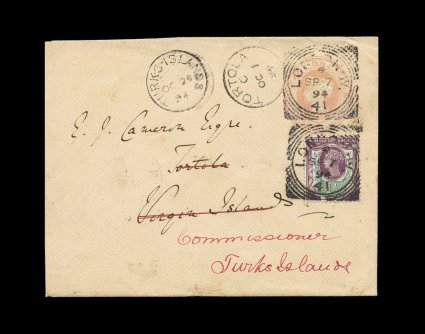 TURKS-ISLANDS
OC 29
94
TORTOLA
C
OC
LONDON.W.
4
SP-
94
41
LONDON
94
41
E. J. Cameron Esqre.
Tortola
Virgin Islands
Commissioner
Turks Islands